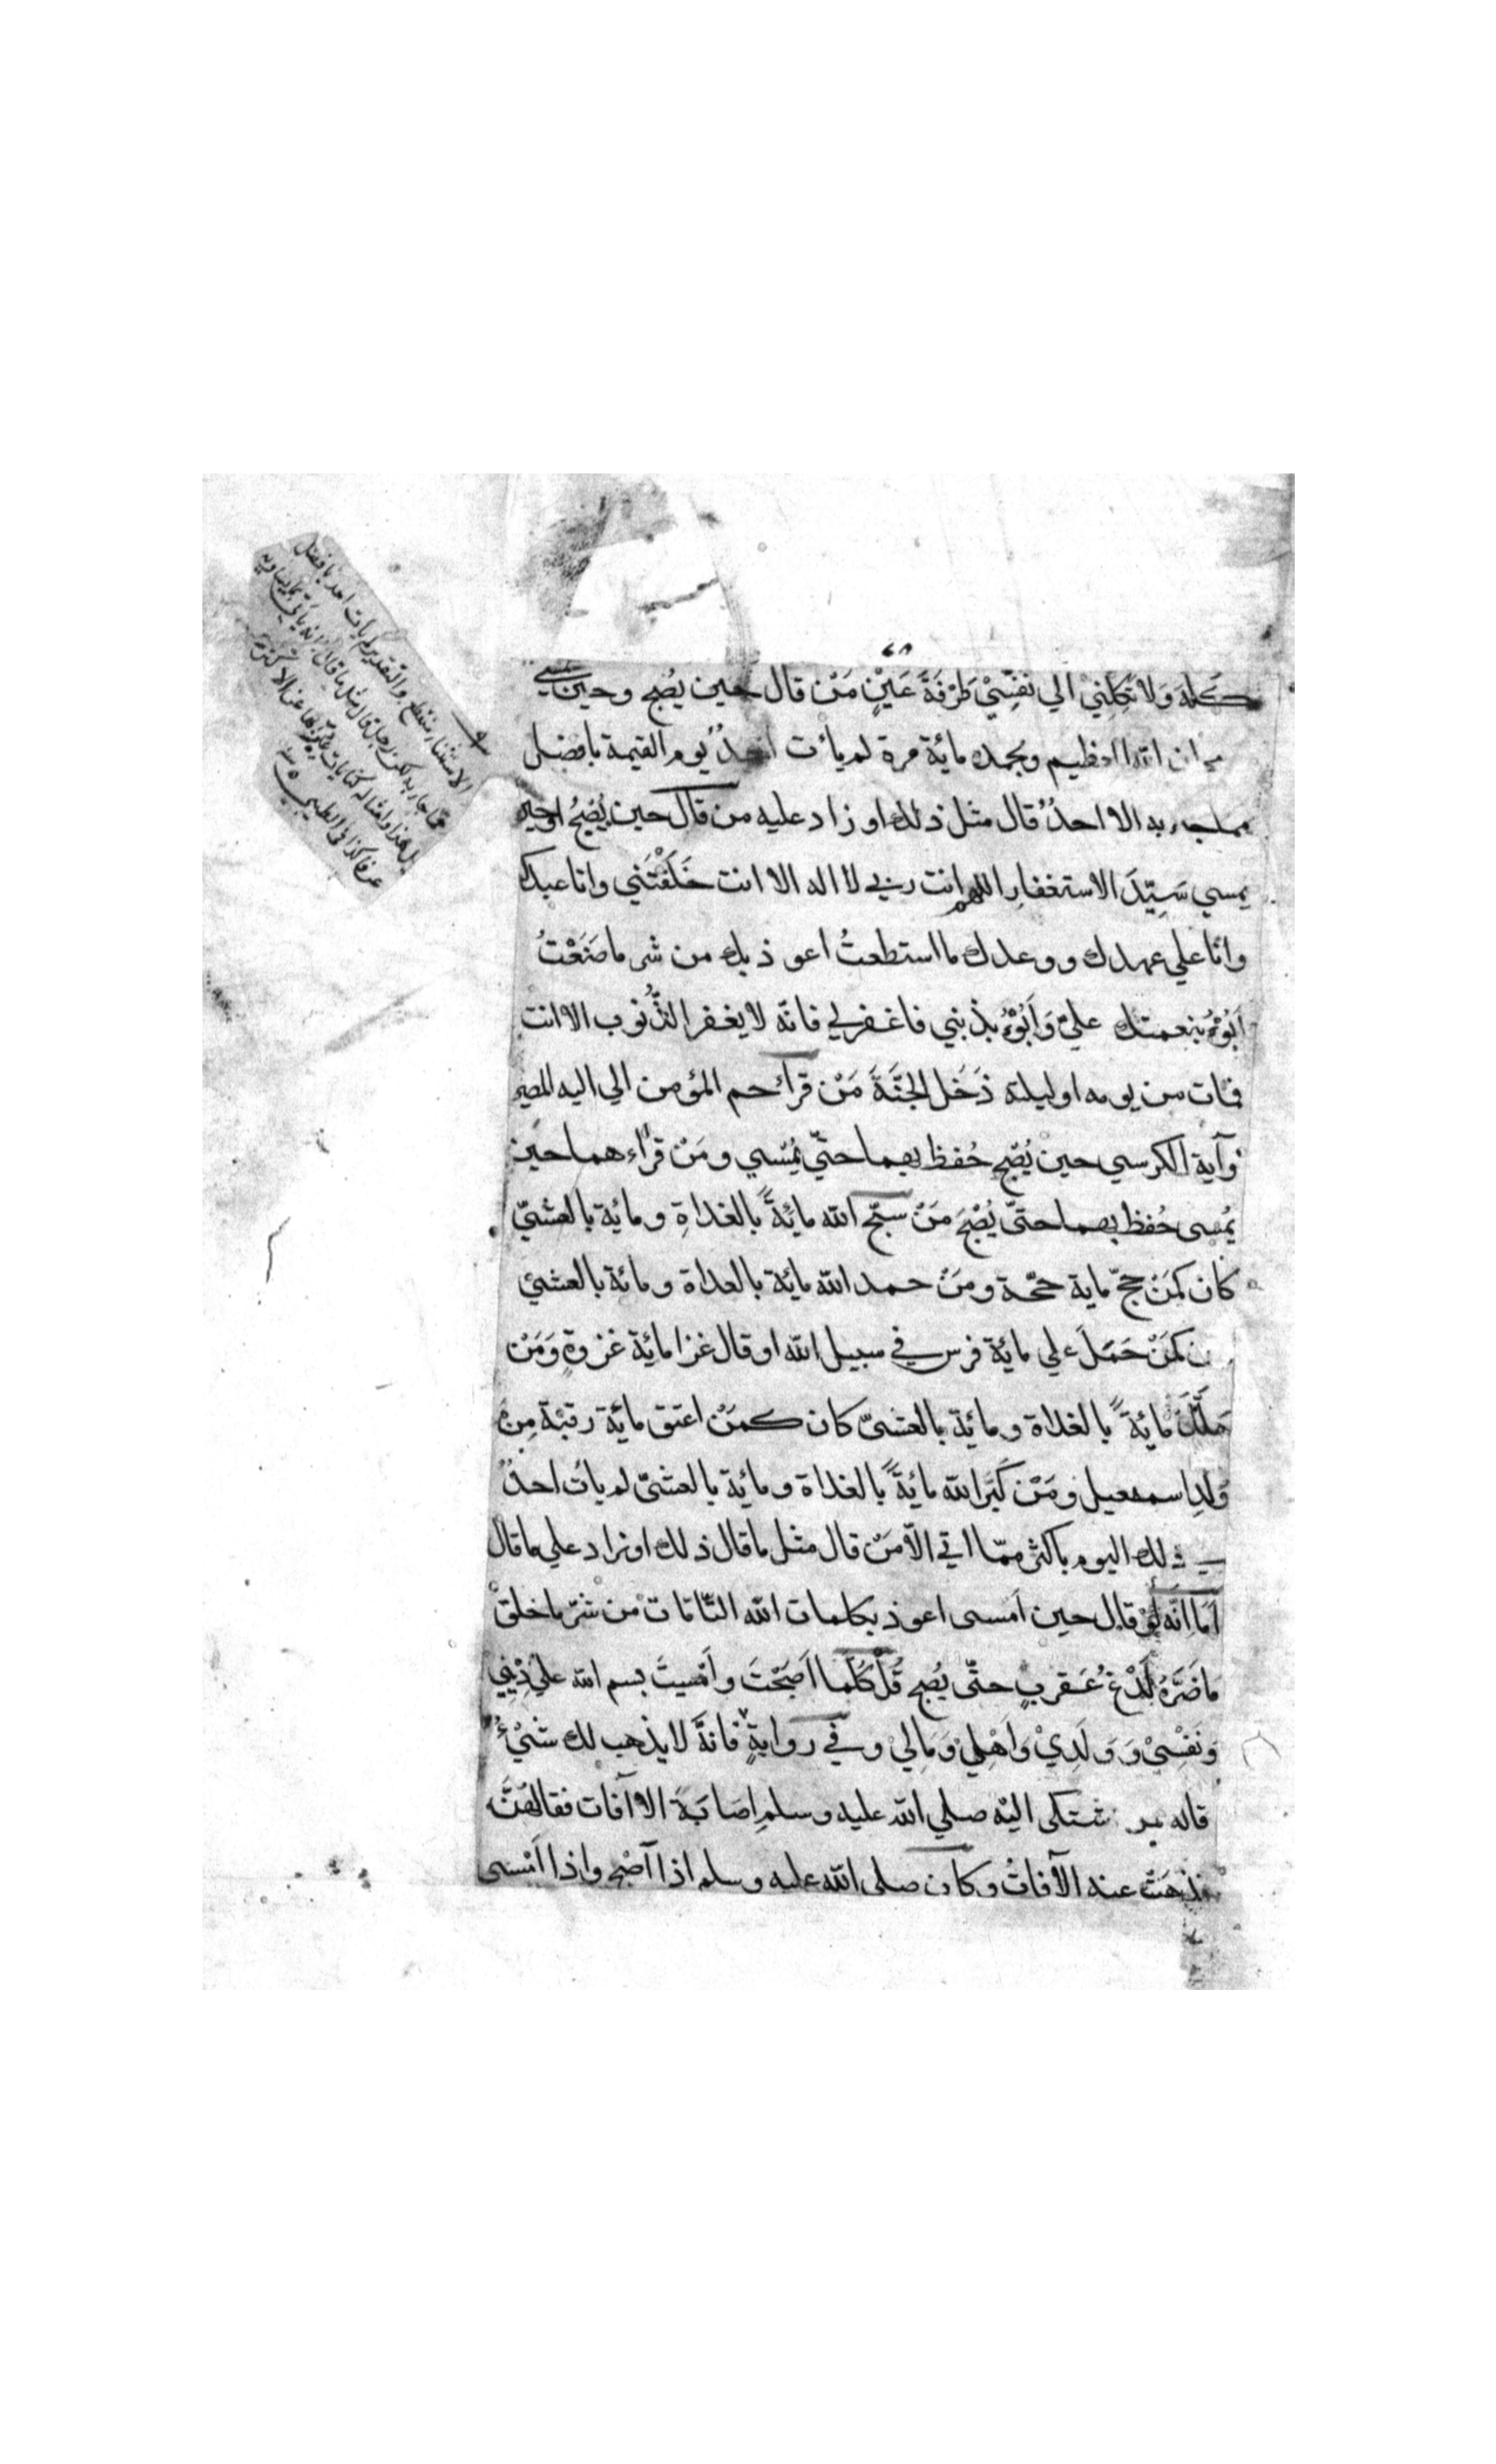 ٤٨
كله وَلا تَكِلْنِيْ الي نَفْسِيْ طَرْفَةَ عَيْنٍ مَنْ قال حين يُصْبِح وحين يمسي
سبحان الله العظيم وبحمده مائة مرة لم يأت احدٌ يوم القيمة بافضل
مما جاء به الا احدٌ قال مثل ذلك او زاد عليه من قال حين يُصْبِحُ او حين
يمسي سَيِّدَ الاستغفارِ اللهم انت ربي لا اله الا انت خَلَقْتَنِي وانا عبدك
وانا علي عهدك ووعدك ما استطعتُ اعوذ بك من شر ما صَنَعْتُ
اَبُوْءُ بنعمتك عليّ وَاَبُوْءُ بذنبي فاغفرلي فانّه لا يغفر الذُّنوب الا انت
فمات من يومه او ليلته دَخَل الجَنَّةَ مَنْ قرأ حم المؤمن الي اليه المصير
وآية الكرسي حين يُصْبِح حُفظ بهما حتّي يُمْسي ومَنْ قرأءهما حين
يُمسى حُفظ بهما حتّى يُصْبِحَ مَنْ سبّح الله مائةً بالغداةِ ومائة بالعشيّ
كان كمَنْ حجّ ماية حجّة ومَنْ حمد الله مائة بالغداة ومائة بالعشيّ
ن كمَنْ حَمَلَ علي مائة فرس في سبيل الله او قال غزا مائة غزوةٍ وَمَنْ
هَلَّلَ مائةً بالغداة ومائة بالعشيّ كان كمَنْ اعتق مائة رقبة مِنْ
وَلدِ اسمعيل ومَنْ كَبَّر الله مائةً بالغداة ومائة بالعشيّ لم يأت احدٌ
في ذلك اليوم باكثر ممّا اتي الّا مَنْ قال مثل ما قال ذلك او زاد علي ما قال
اَمَا اِنَّه لَوْ قال حين اَمسى اعوذ بكلمات الله التّامات من شرّ ما خلق
مَا ضَرَّهُ لَدْغُ عَقربٍ حتّى يُصبح قُلْ كُلَّما اَصبَحْتَ واَمْسيتَ بسم الله علي دِيْنِي
وَنَفْسِيْ وَوَلَدِيْ وَاَهْلِي وَمَالِيْ وفي روايةٍ فانّه لا يذهب لك شيْءٌ
قاله شتكى اليْه صلي الله عليه وسلم اِصَابَةَ الآفات فقالهُنَّ
فذهبَتْ عنه الآفاتُ وكان صلى الله عليه وسلم اذا آصْبح واذا اَمْسى
الاستثناء منقطع والتقدير لم يأت احد بافضل
مما جاء به لكن رجل قال مثل ما قاله فانه يأتي بما يساويه
عرفا كذا في الطيبي